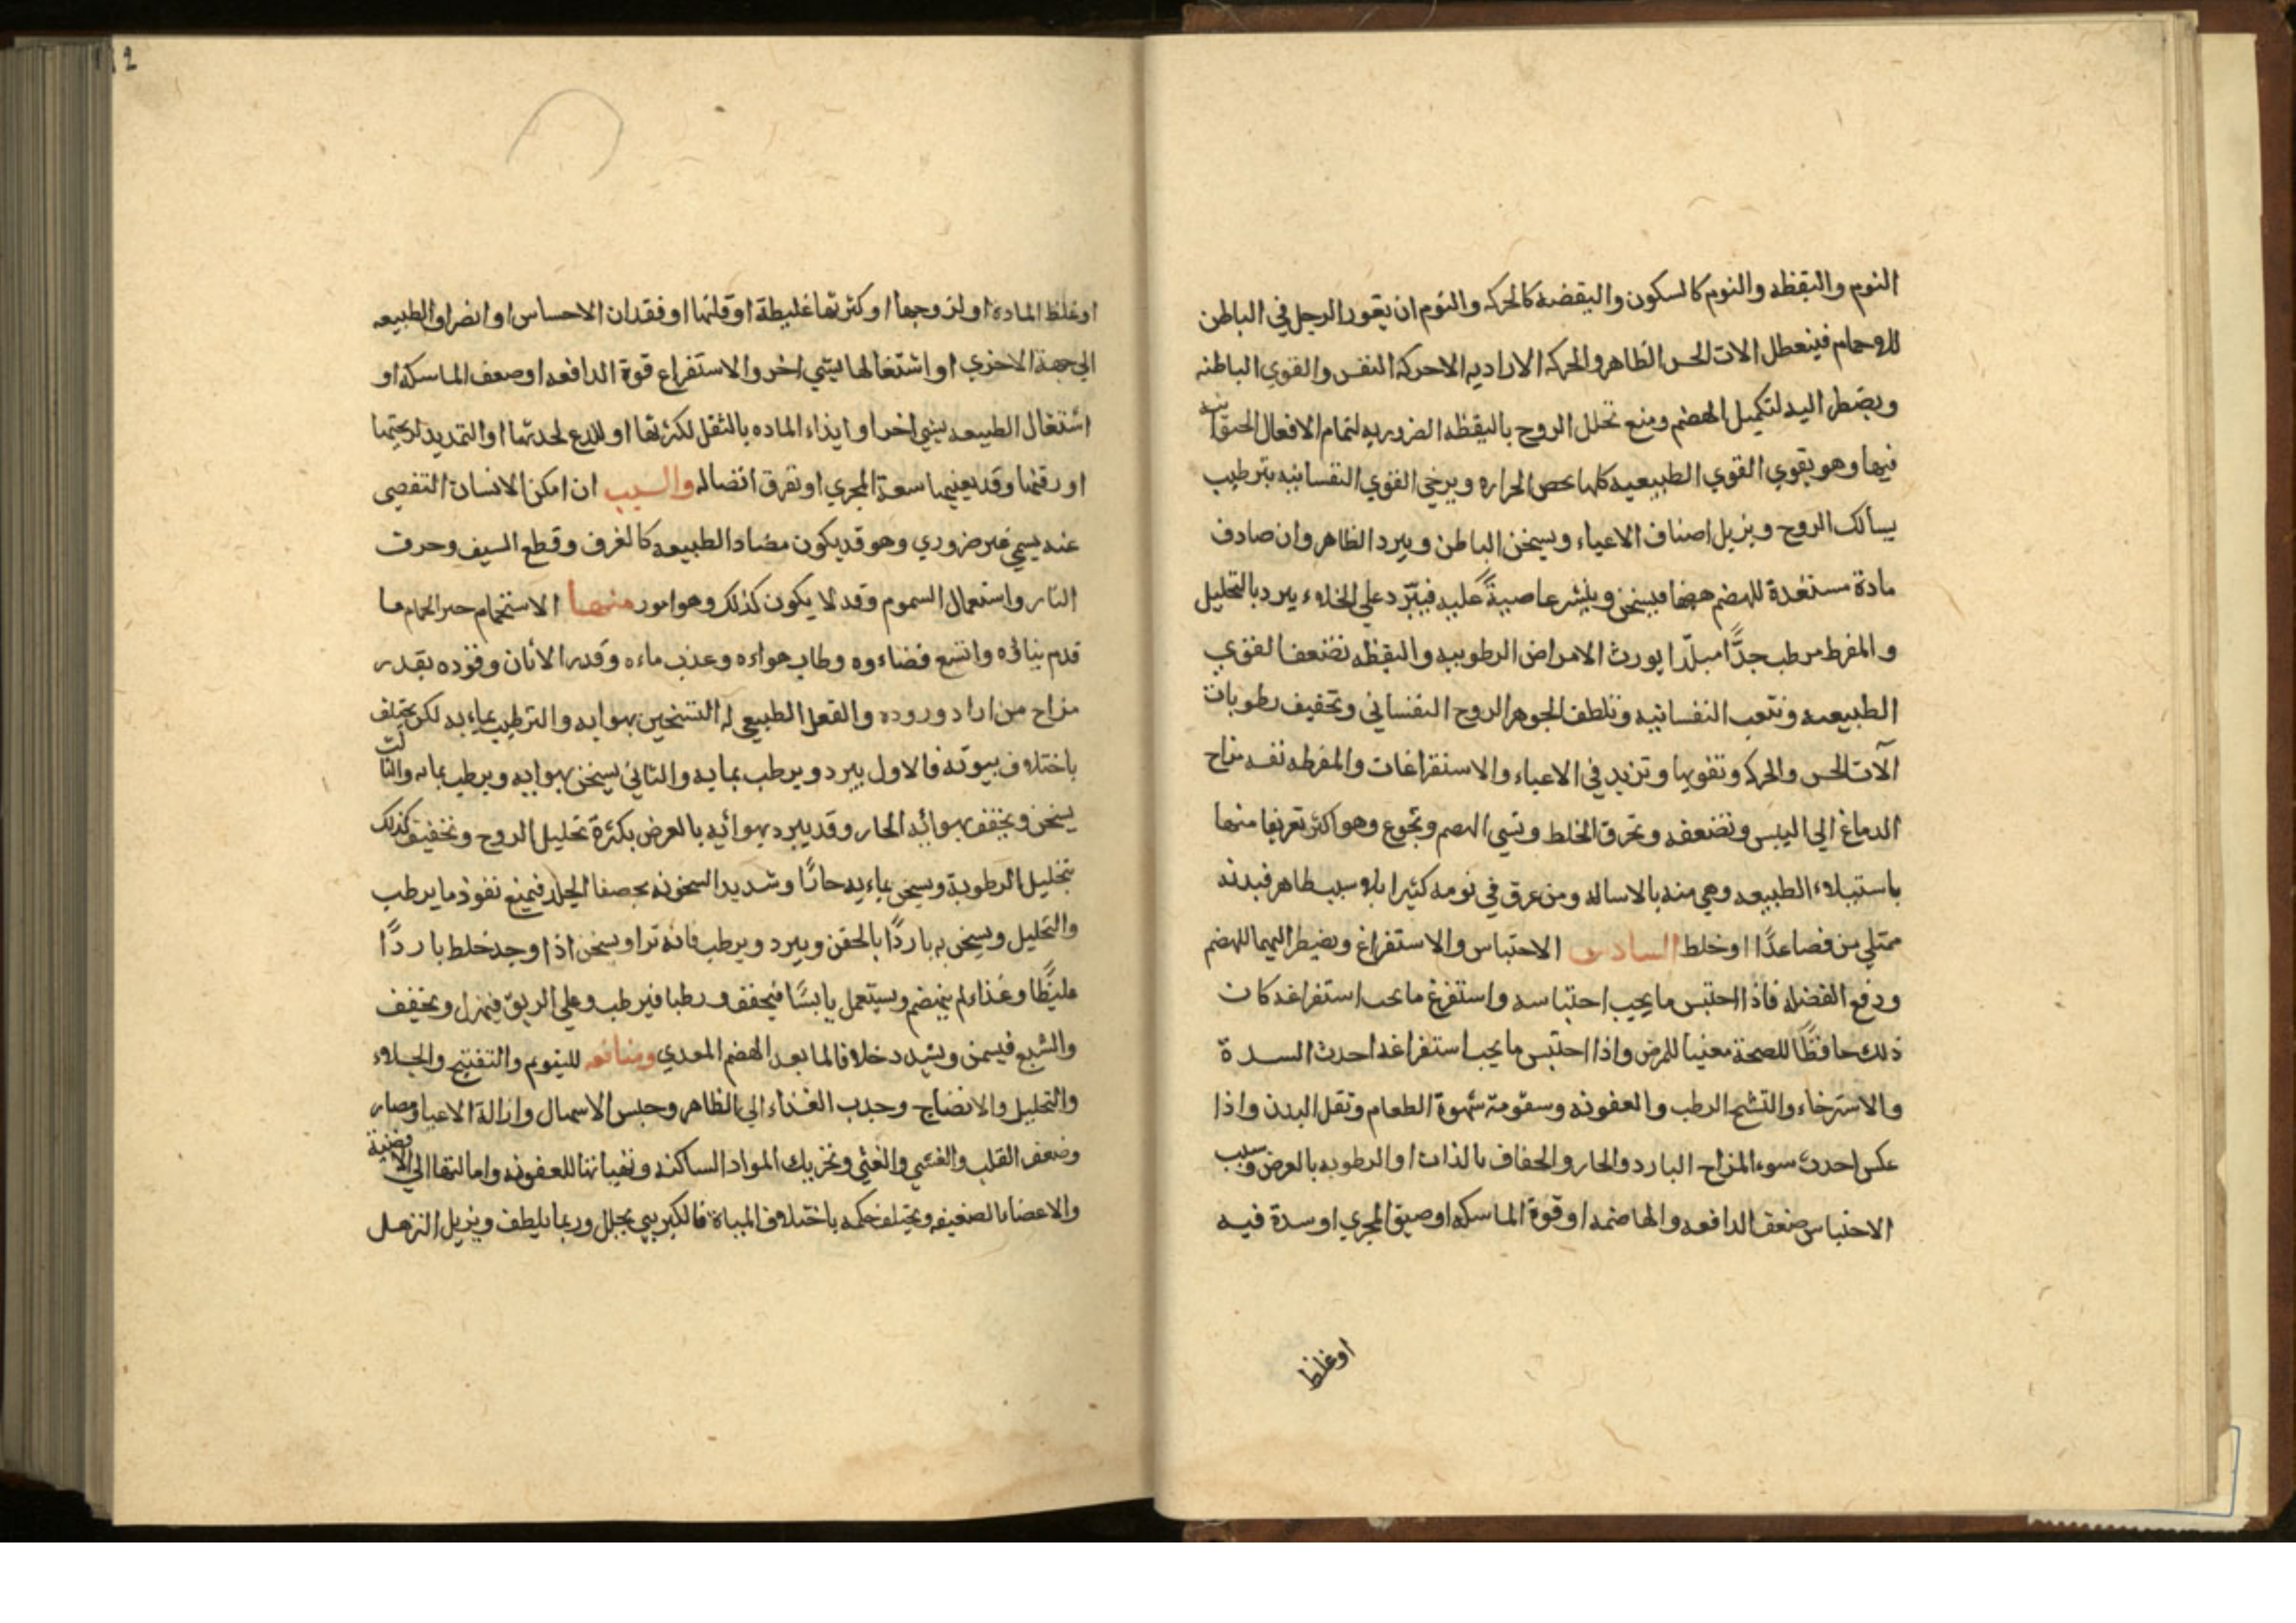 النوم واليقظه والنوم كالسكون واليقضة كالحركه والنوم ان يغور الرجل في الباطن
للروحام فينعطل الات الحس الظاهر والحركه الاراديه الاحركة النفس والقوي الباطنه
ويضطر اليه لتكميل الهضم ومنع تحلل الروح باليقظه الضروريه لتمام الافعال
فيها وهو يقوي القوي الطبيعيه كلها الحراره ويرخي القوي النفسانيه بترطيب
الروح ويزيل اصناف الاعياء ويسخن الباطن ويبرد الظاهر وان صادف
مادة مستعدة للهضم هضما فيسخن وينشر عاصيةً عليه فيبّرد علي الخلاء يبرد بالتحليل
والمفرط مرطب جدًّا مبلّدا يورث الامراض الرطوبيه واليقظه تضعف القوي
الطبيعيه وتتعب النفسانيه وتلطف الجوهر الروح النفساني وتخفيف رطوبات
آلات الحس والحركه وتقويها وتزيد في الاعياء والاستفراغات والمفرطه مزاح
الدماغ الي اليبس وتضعفه وتحرق الخلط وتسي الهضم وتجوع وهو اكثر تعريفا منها
باستيلاء الطبيعه وهي منه بالاساله ومن عرق في نومه كثيرا بلا سبب ظاهر فبدنه
ممتلي من فصاعدًا او خلط السادس الاحتباس والاستفراغ ويضطر اليهما للهضم
ودفع الفضله فاذا احتبس ما يجب احتباسه واستفرغ ما يجب استفراغه كان
ذلك حافظًا للصحة معنيا للمرض واذا احتبس ما يجب استفراغه احدث السدة
والاسترخاء والتشنج الرطب والعفونه وسقومة شهوة الطعام وثقل البدن واذا
عكس احدث سوء المزاح البارد والحار والجفاف بالذات او الرطوبه بالعرض وسبب
الاحتباس ضعف الدافعه والهاضمه او قوة الماسكه او ضيق المجري او سدة فيه
اوغلظ
2
اوغلظ المادة او لزوجها او كثرتها غليظة او قلتها او فقدان الاحساس او انصراو الطبيعه
الي جهة الاخري او اشتغالها بشي اخر والاستفراغ قوة الدافعه او ضعف الماسكه او
اشتغال الطبيعه بشي اخر او ايذاء الماده بالثقل لكثرتها او للدع لحدتها او التمديد
او رقتها وقد يعينها سعة المجري او تفرق اتصاله والسبب ان امكن الانسان التفصي
عنه يسمي غير ضروري وهو قد يكون مضاد الطبيعه كالغرف وقطع السيف وحرق
النار واستعمال السموم وقد لا يكون كذلك وهو امور منها الاستحمام خير الحمام ما
قدم بناؤه واتسع فضاءوه وطاب هواءه وعذب ماءه وقدر الأتان وقوده بقدر
مزاح من اراد وروده والفعل الطبيعي له التسخين بهوايه والترطيب بماءيه لكن يختلف
باختلاف بيوته فالاول يبرد ويرطب بمايه والثاني يسخن بهوايه ويرطب بمايه والثالث
يسخن ويجفف بهوائه الحار وقد يبرد بهوائيه بالعرض بكثرة تحليل الروح وتخفيف كذلك
بتحليل الرطوبة ويسخن بماءيه حارًّا وشديد السخونه الجلد فيمنع نفوذ ما يرطب
والتحليل ويسخن به باردًا بالحقن ويبرد ويرطب فاته ويسخن اذا وجد خلط باردًا
غليظًا وغذاء لم ينهضم ويستعمل يابسًا فيجفف ورطبا فيرطب وعلي الريق فيهزل ويجفف
والشبع فيسمن ويشدد خلافا لما بعد الهضم المعدي ومنافعه للتنويم والتفتيح والجلاء
والتحليل والانضاج وجذب الغذاء الي الظاهر وحبس الاسهال وازالة الاعيا ومضار
وضعف القلب والغشي والغثي وتحريك المواد الساكنه للعفونه وامالتها الي الافضية
والاعضاء الضعيفه ويختلف حكمه باختلاف المياة فالكبريتي يحلل وربما يلطف ويزيل الترهل